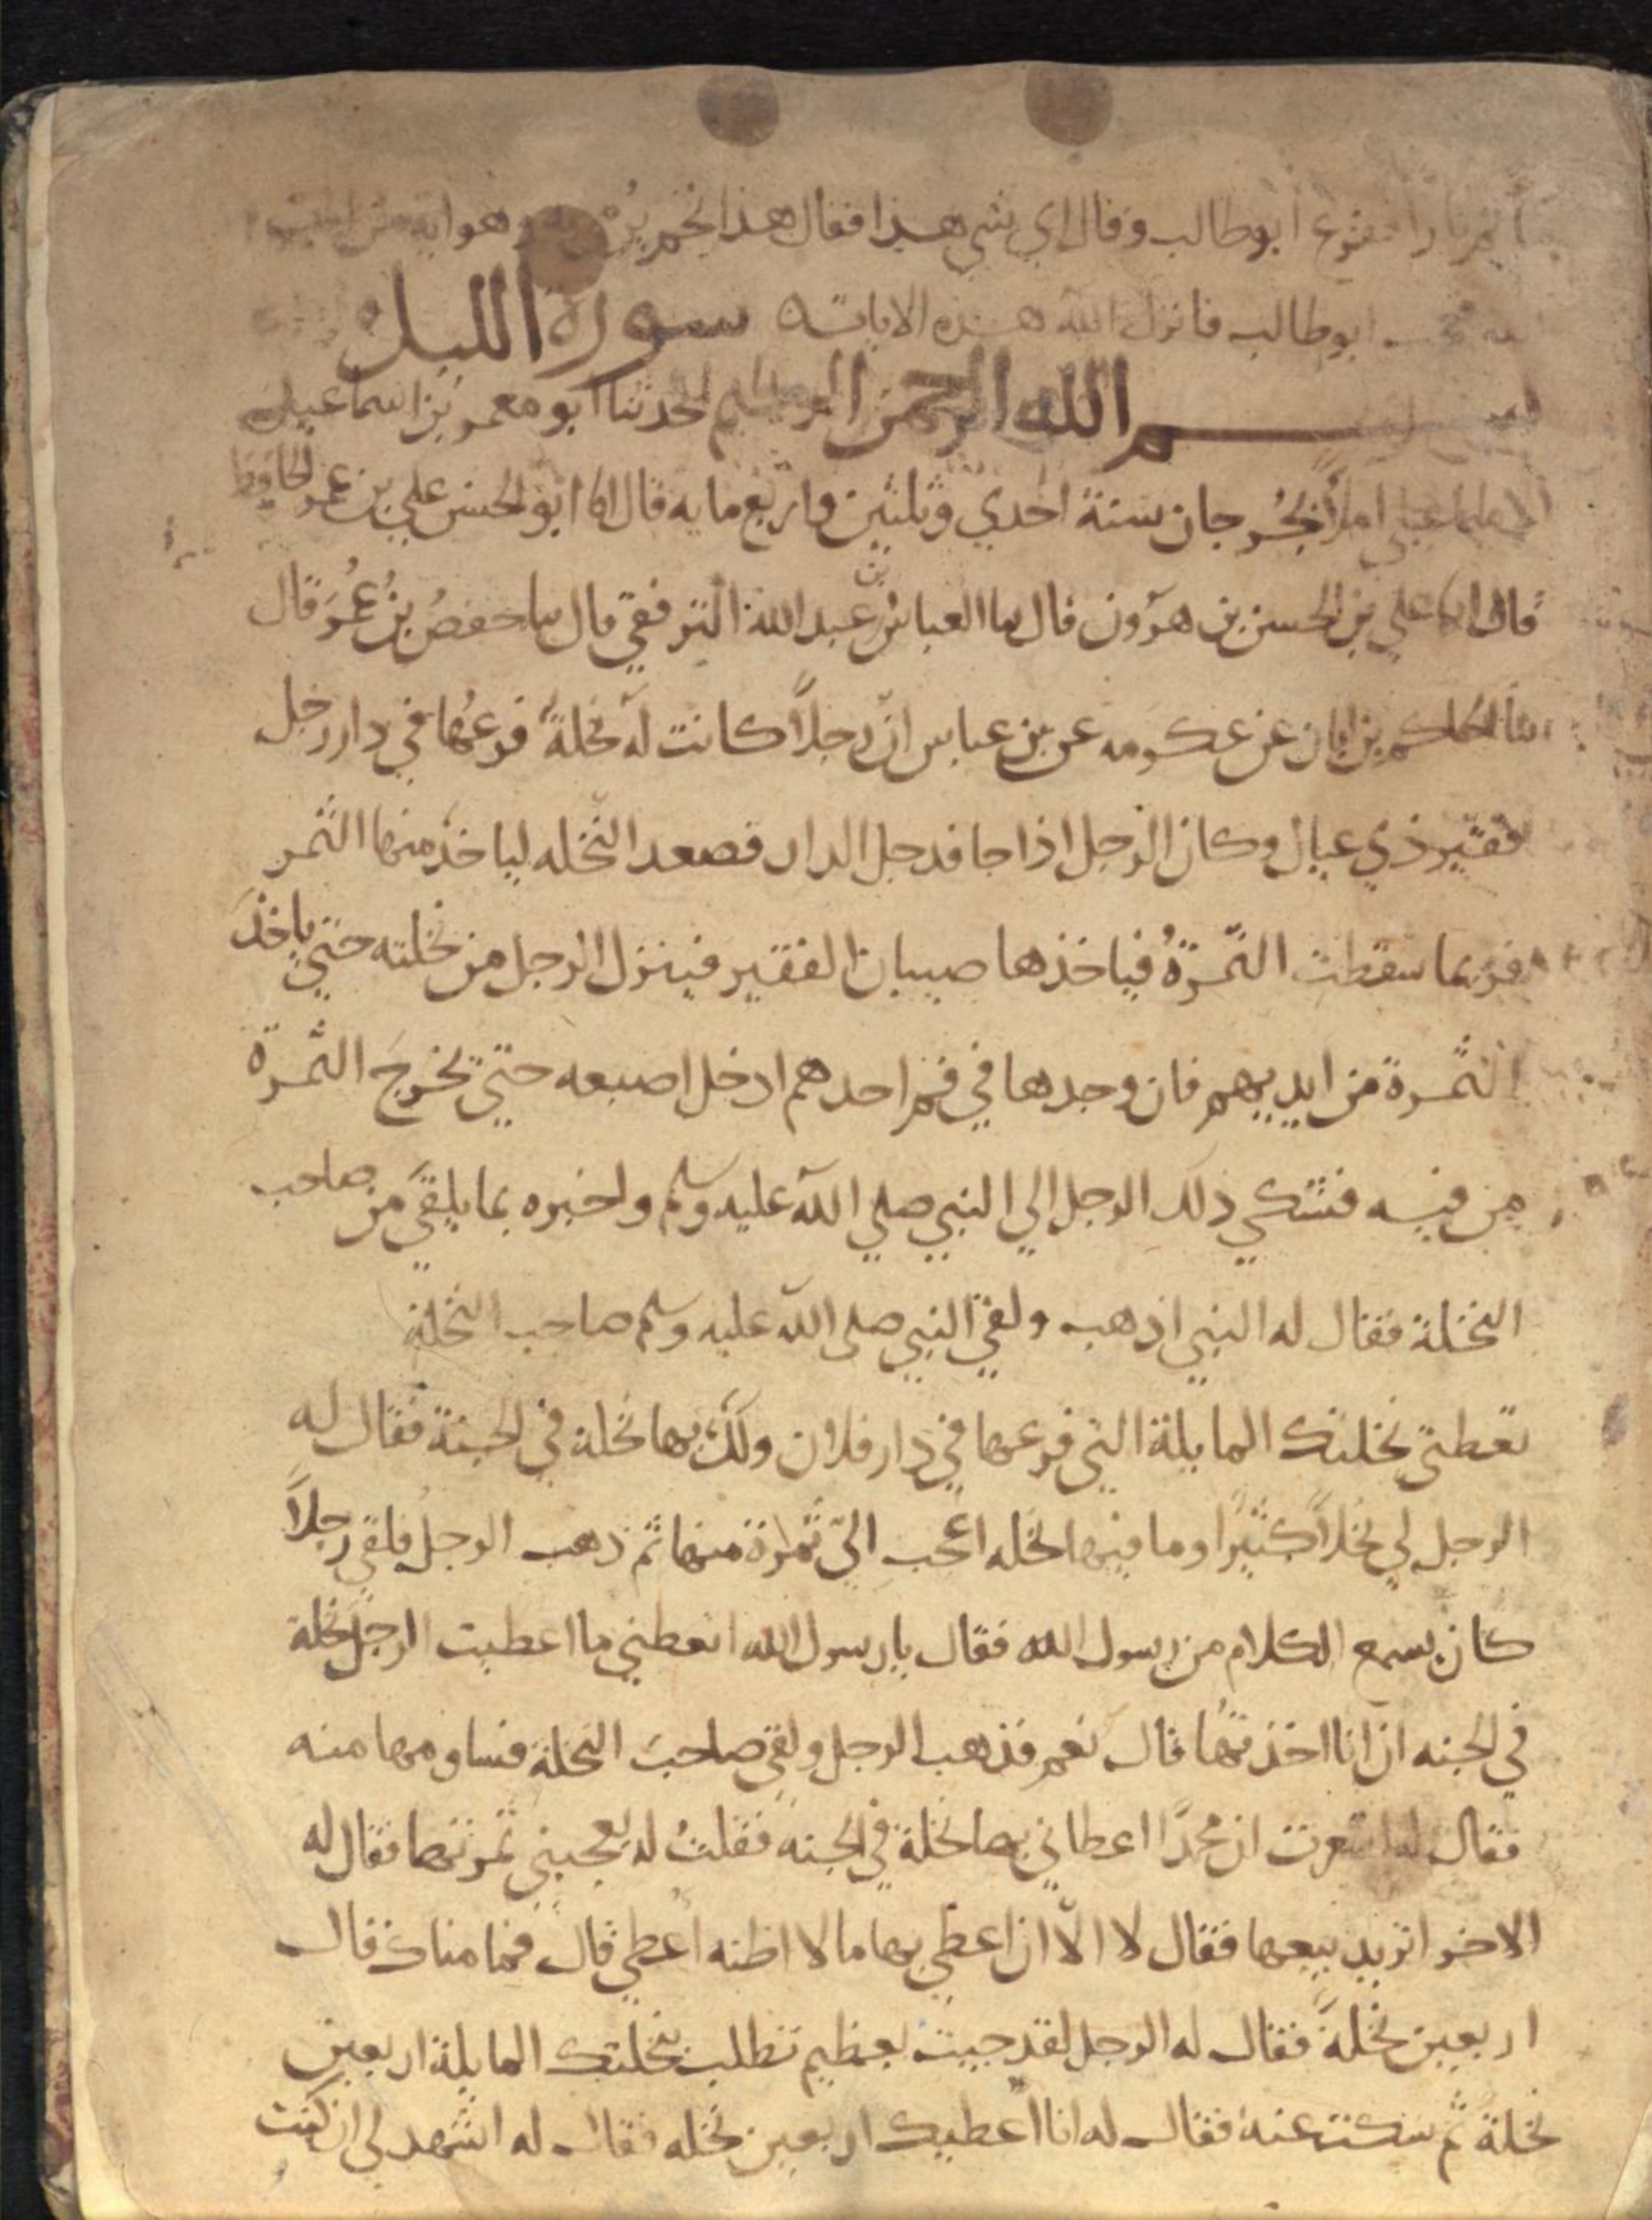 ففزع ابو طالب وقال اي شي هذا فقال هذا نجم وهو اية من
ابو طالب فانزل الله هذه الايات سورة الليل
بسم الله الرحمن الرحيم حدثنا ابو معمر بن اسماعيل
املاً بجُرجان سنة احدي وثلثين واربع مايه قال انا ابو الحسن علي بن عمر الحافظ
قال انا علي بن الحسن بن هرون قال نا العباس بن عبد الله الترفقي قال نا حفصُ بنُ عُمَر قال
نا الحكم بن ابان عن عكرمه عن بن عباس انّ رجلاً كانت له نخلةً فرعُها في دار رجل
فقير ذي عيال وكان الرجل اذا جا فدخل الدار فصعد النخله لياخذ منها الثمر
فربما سقطت الثّمرَةُ فياخذها صبيان الفقير فينزل الرجل من نخلته حتي ياخذَ
الثمرة من ايديهم فان وجدها في فم احدهم ادخل اصبعه حتي يخرجَ الثمرة
من فيه فشكي ذلك الرجل الي النبي صلي الله عليه وسلم واخبره بما يلقي من صاحب
النخلة فقال له النبي اذهب ولقي النبي صلى الله عليه وسلم صاحب النخلة
تعطني نخلتك المايلة التي فرعها في دار فلان ولك بها نخلة في الجنة فقال له
الرجل لي نخلاً كثيرا وما فيها نخله اعجب اليّ ثمرة منها ثم ذهب الرجل فلقي رجلاً
كان يسمع الكلام من رسول الله فقال يا رسول الله اتعطني ما اعطيت الرجل نخلة
في الجنه ان انا اخذتها قال نعم فذهب الرجل ولقي صاحبَ النخلة فساومها منه
فقال له اشعرت ان محمدًا اعطاني بها نخلة في الجنه فقلتُ له يعجبني ثمرتها فقال له
الاخر اتريد بيعها فقال لا الّا ان اعطي بها ما لا اظنه اعطي قال فما مناك قال
اربعين نخلةً فقال له الرجل لقد جيت بعظيم تطلب بنخلتك المايلة اربعين
نخلة ثم سكت عنه فقال له انا اعطيك اربعين نخله فقال له اشهد لي ان كنت